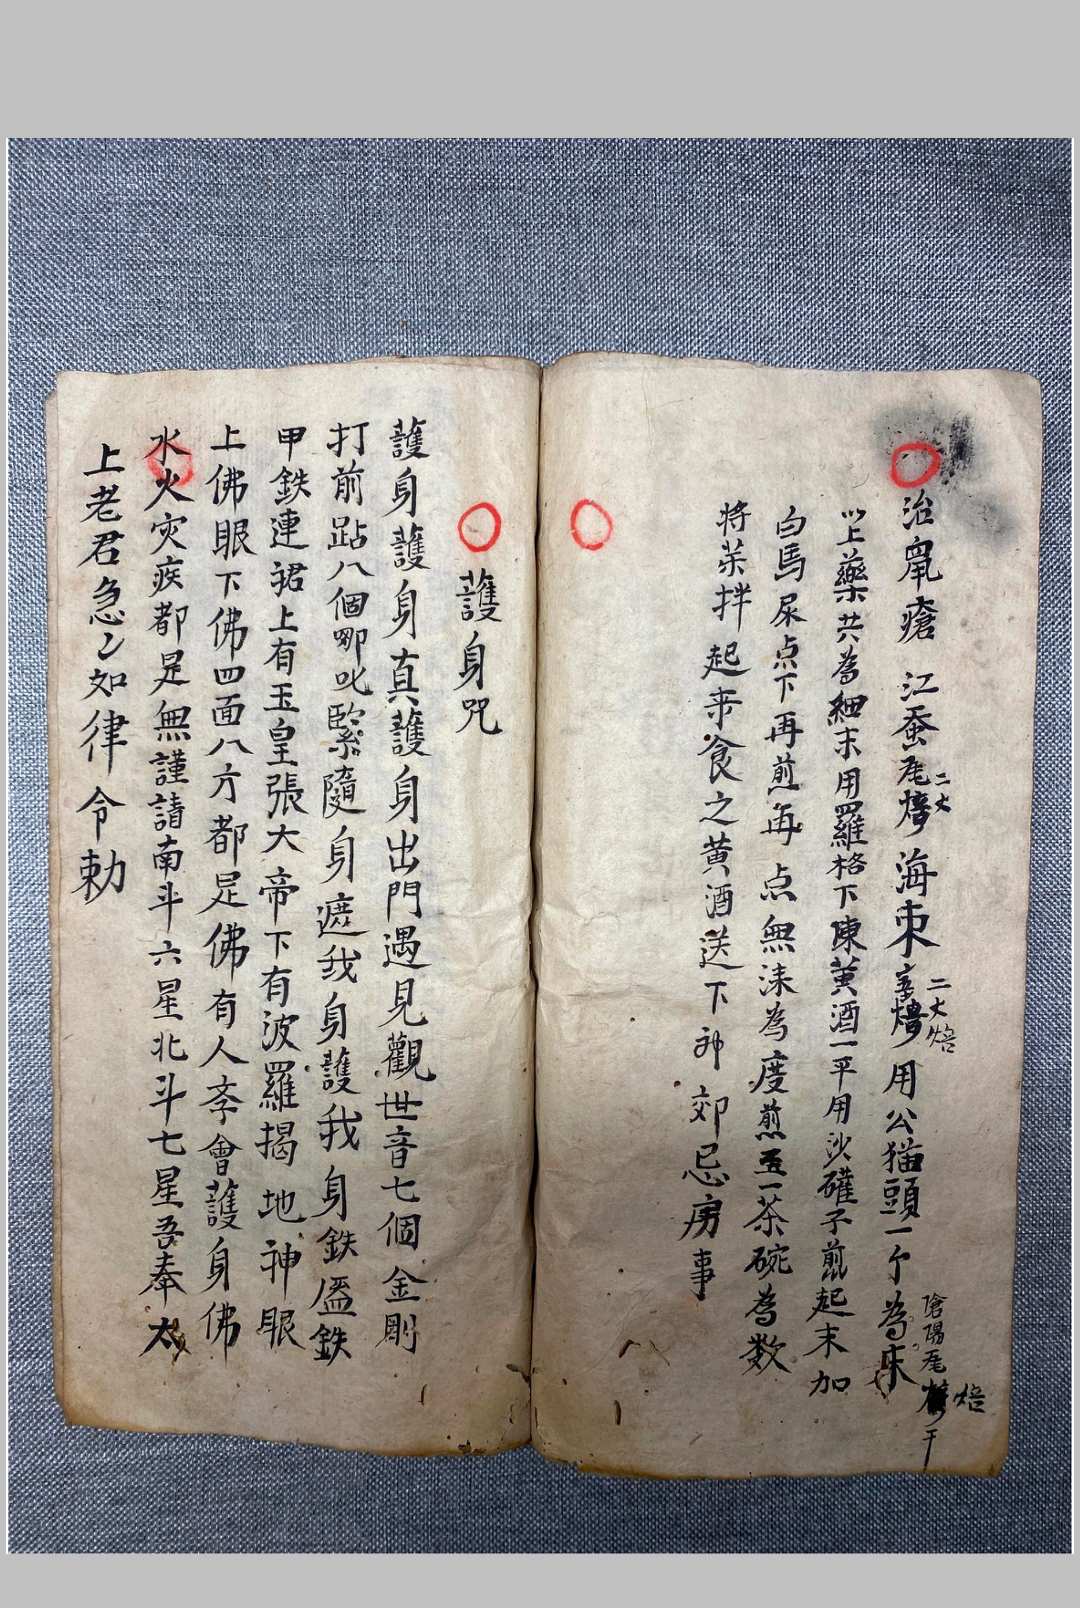 治鼠瘡 江蚕尾焙 海朿焙 用公猫頭一个為末
二丈
二丈 焙
陰陽尾 焙干
以上藥共為細末用羅格下陳黄酒一平用沙礶子煎起末加
白馬尿点下再煎再点無沫為度煎至一茶碗為数
将茶拌起来食之黄酒送下 郊忌房事
護身咒
護身護身真護身出門遇見觀世音七個金剛
打前跕八個哪叱緊隨身遮我身護我身鉄盔鉄
甲鉄連裙上有玉皇張大帝下有波羅揭地神眼
上佛眼下佛四面八方都是佛有人李會護身佛
水火灾疾都是無謹請南斗六星北斗七星吾奉太
上老君急々如律令勅